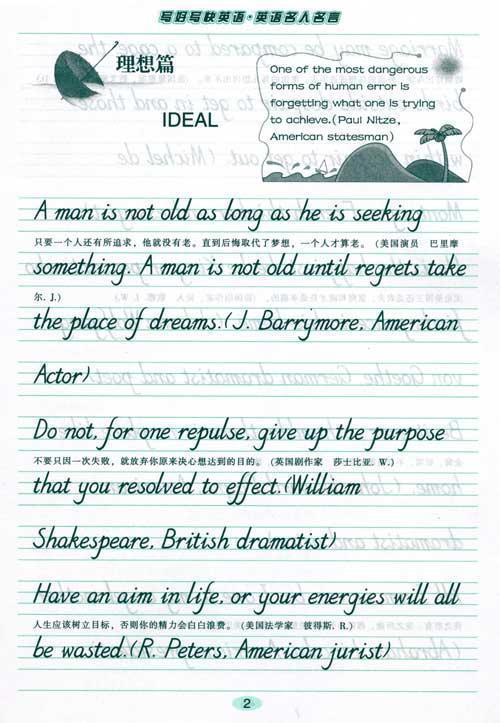 写好写快英语·英语名人名言
理想篇
IDEAL
One of the most dangerous
forms of human error is
forgetting what one is trying
to achieve.(Paul Nitze,
American statesman)
A man is not old as long as he is seeking
只要一个人还有所追求，他就没有老。直到后悔取代了梦想，一个人才算老。（美国演员 巴里摩
something. A man is not old until regrets take
尔. J.）
the place of dreams.(J. Barrymore, American
Actor)
Do not, for one repulse, give up the purpose
不要只因一次失败，就放弃你原来决心想达到的目的。（英国剧作家 莎士比亚. W.）
that you resolved to effect.(William
Shakespeare, British dramatist)
Have an aim in life, or your energies will all
人生应该树立目标，否则你的精力会白白浪费。（美国法学家 彼得斯. R.）
be wasted.(R. Peters, American jurist)
2